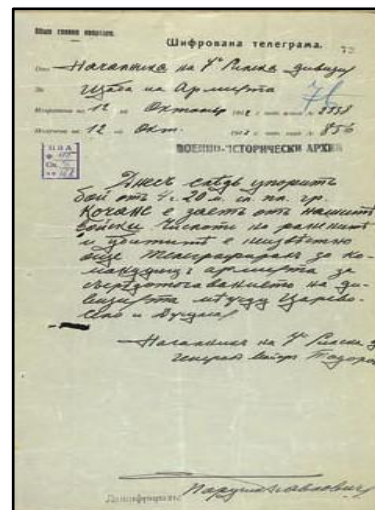 Шифрована телеграма.
От Началника на 7а Рилска дивизия
До Щаба на Армията
Изпратена на 12 на Октомврий 1912 г.
Получена на 12 на Окт. 1912 г. 856
76
ВОЕННО-ИСТОРИЧЕСКИ АРХИВ
Днесь следъ упорить
бой отъ 4 ч. 20 м. сл. пл. гр.
Кочане е заетъ отъ нашитѣ
войски Числото на раненитѣ
и убититѣ е неизвѣстно
още Телеграфирахъ до ко-
мандующ армията за
съсрѣдоточаванието на ди-
визията между Царево-
село и
Началникъ на 7а Рилска д.
генералъ маиоръ Тодоров
Дешифриралъ: